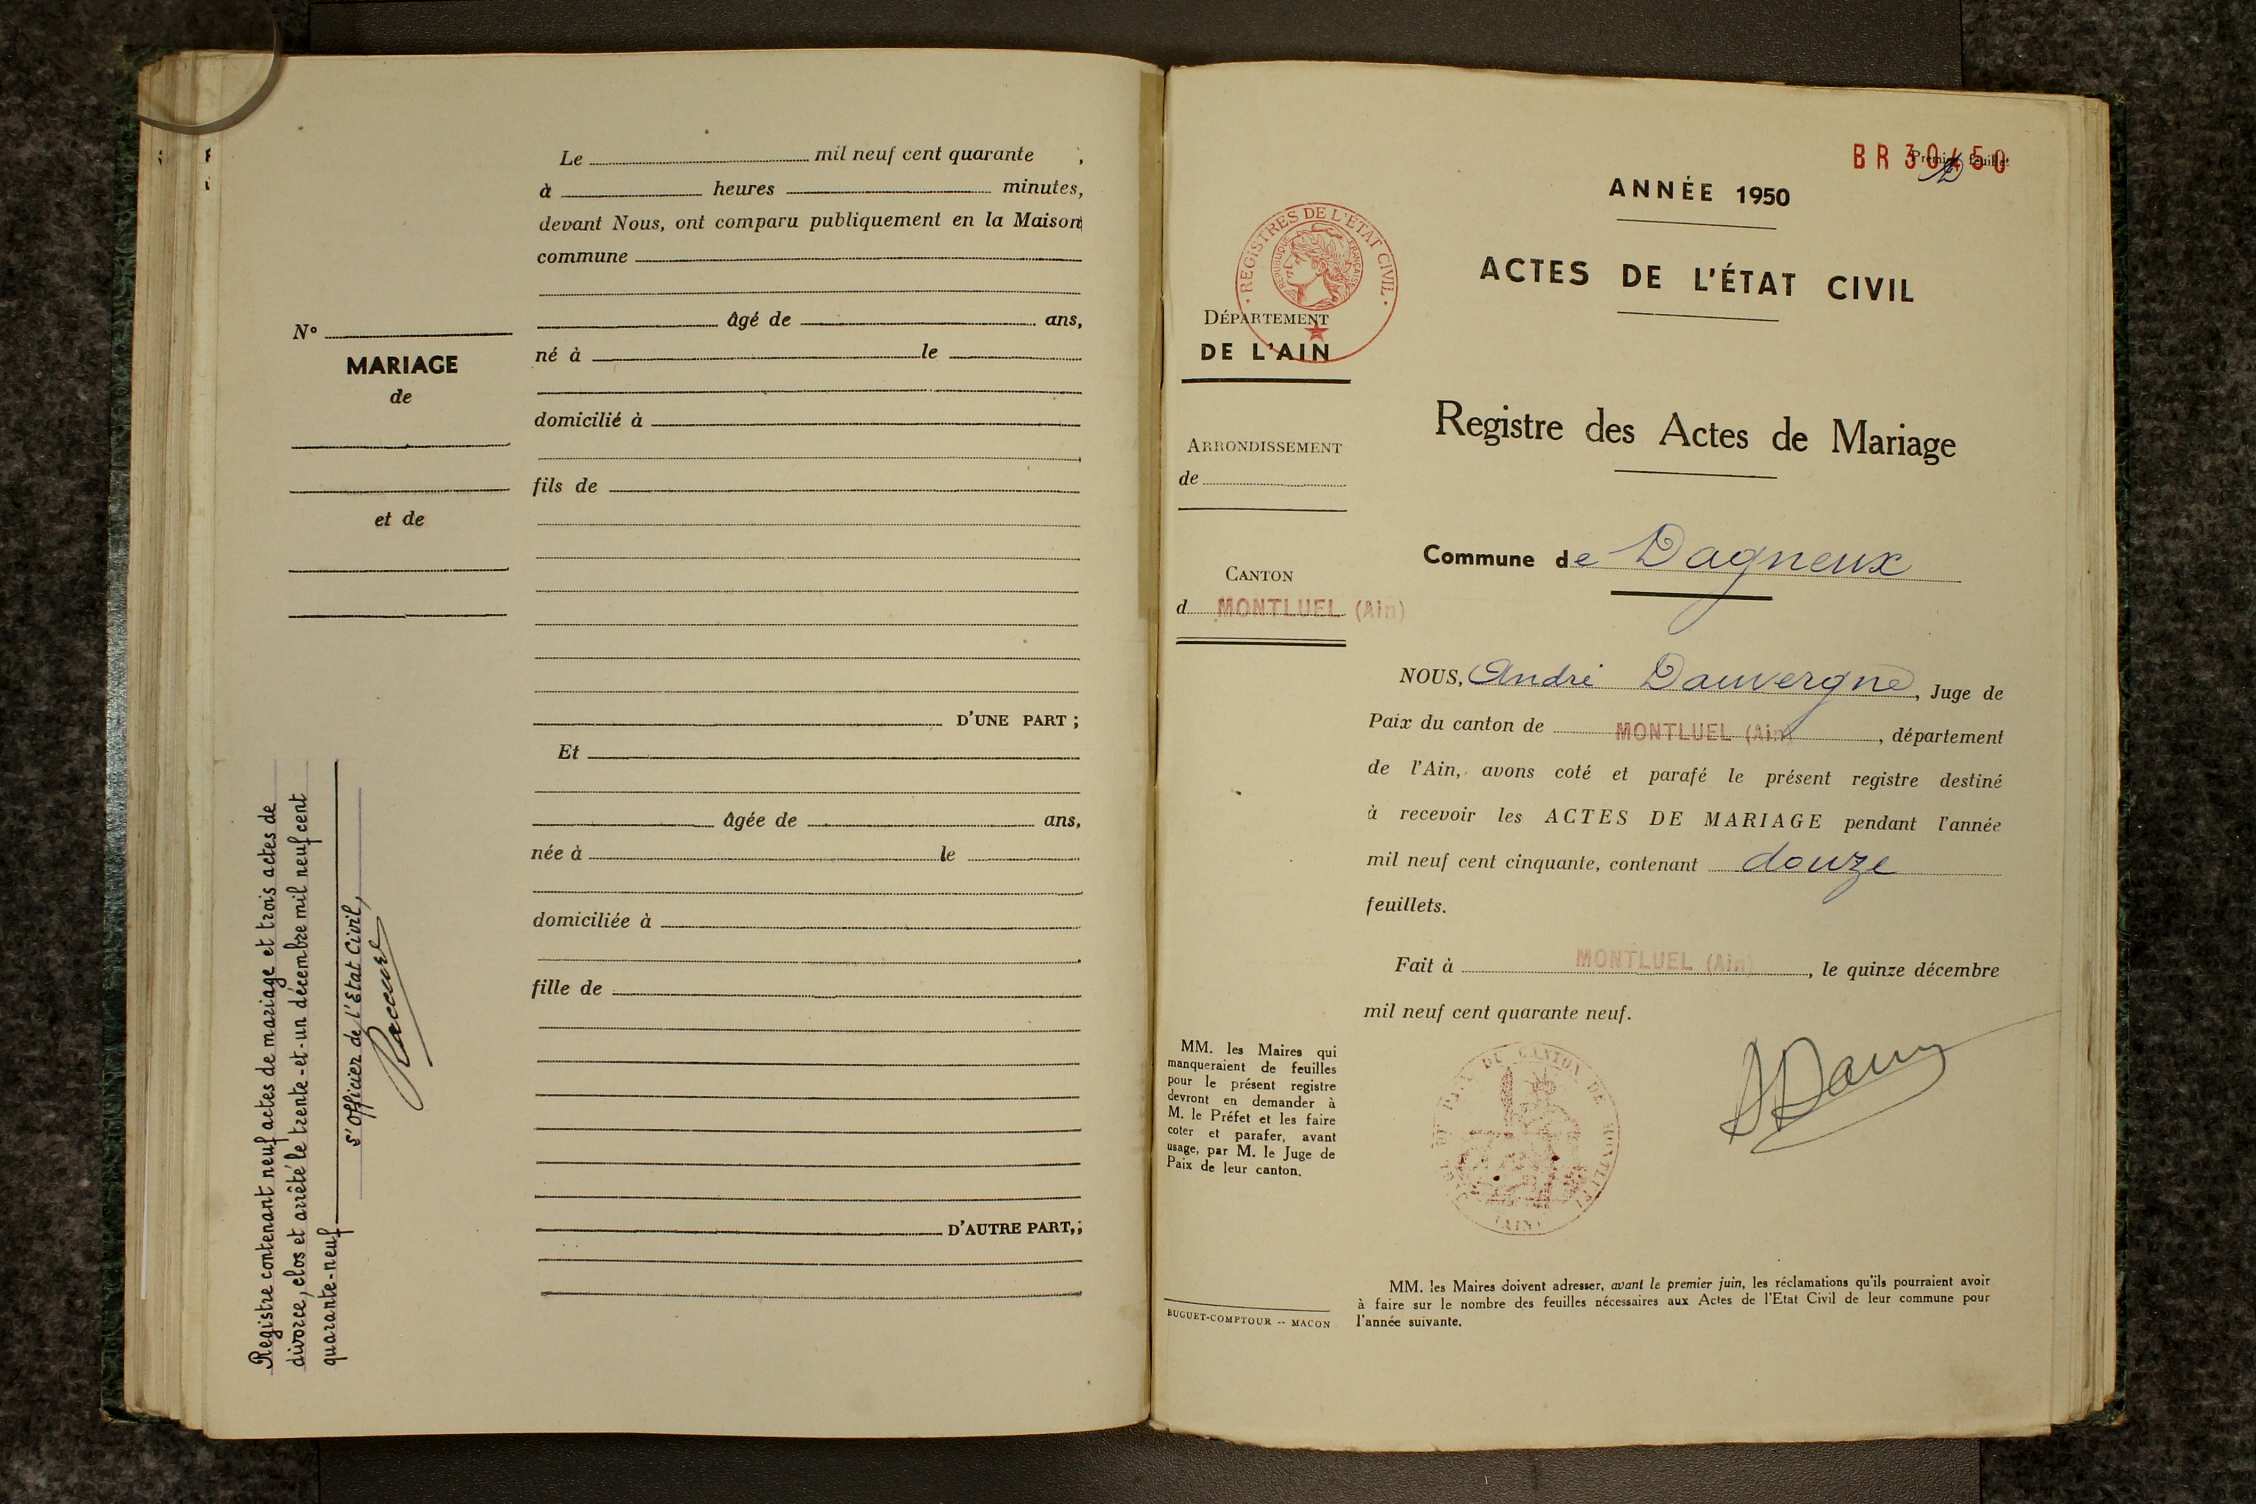 Le mil neuf cent quarante ,
à heures minutes,
devant Nous, ont comparu publiquement en la Maison
commune
âgé de ans,
né à le
domicilié à
fils de
D'UNE PART ;
Et
âgée de ans,
née à le
domiciliée à
fille de
D'AUTRE PART, ;
N°
MARIAGE
de
et de
Registre contenant neuf actes de mariage et trois actes de
divorce, clos et arrêté le trente-et-un décembre mil neuf cent
quarante-neuf
L'Officier de l'Etat Civil,
BR 30450
Premier feuillet
ANNÉE 1950
ACTES DE L'ÉTAT CIVIL
REGISTRES DE L'ETAT CIVIL
REPUBLIQUE FRANÇAISE
DÉPARTEMENT
DE L'AIN
ARRONDISSEMENT
de
CANTON
d MONTLUEL (Ain)
Registre des Actes de Mariage
Commune de Dagneux
NOUS, André Dauvergne, Juge de
Paix du canton de MONTLUEL (Ain), département
de l'Ain, avons coté et parafé le présent registre destiné
à recevoir les ACTES DE MARIAGE pendant l'année
mil neuf cent cinquante, contenant douze
feuillets.
Fait à MONTLUEL (Ain), le quinze décembre
mil neuf cent quarante neuf.
MM. les Maires qui
manqueraient de feuilles
pour le présent registre
devront en demander à
M. le Préfet et les faire
coter et parafer, avant
usage, par M. le Juge de
Paix de leur canton.
DE PAIX DU CANTON DE MONTLUEL
(AIN)
BUGUET-COMPTOUR -- MACON
MM. les Maires doivent adresser, avant le premier juin, les réclamations qu'ils pourraient avoir
à faire sur le nombre des feuilles nécessaires aux Actes de l'Etat Civil de leur commune pour
l'année suivante.